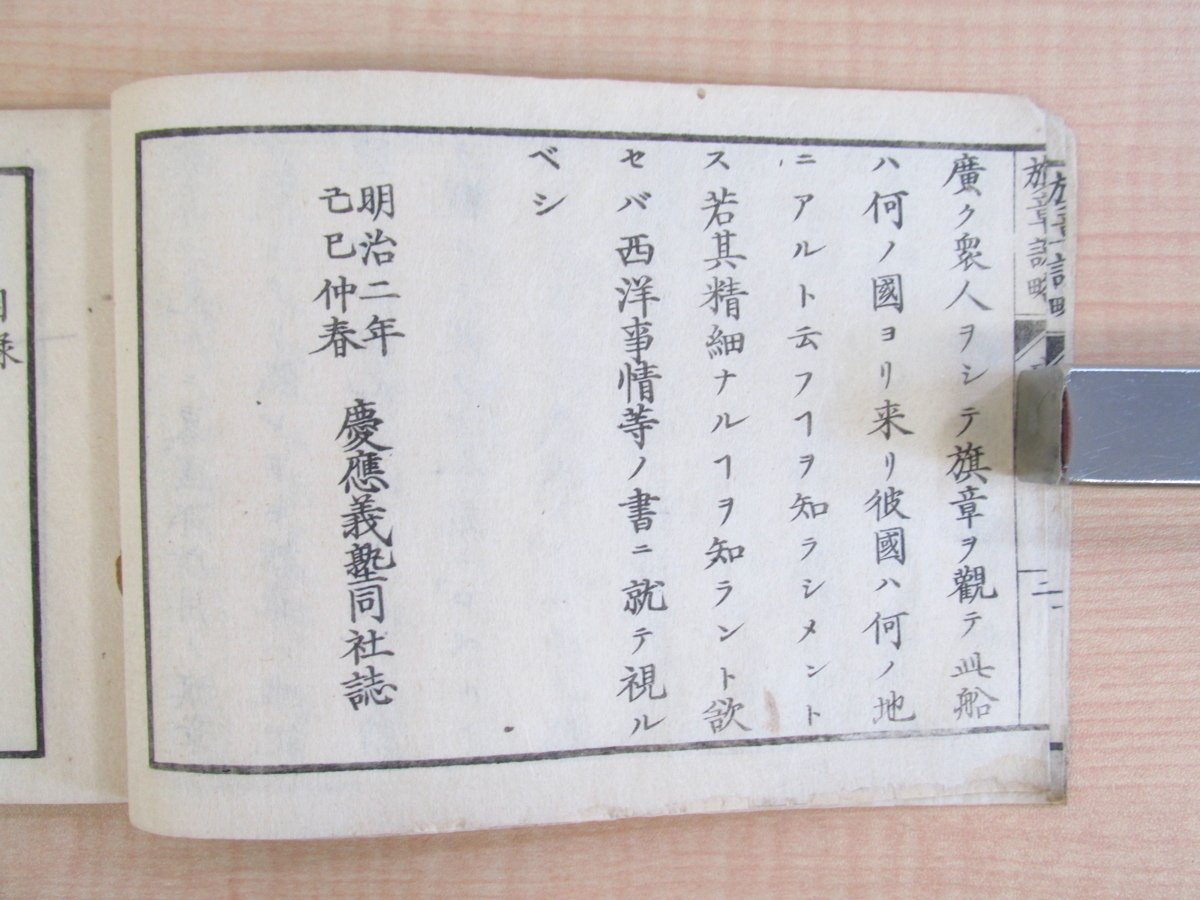 旗章記略
二
廣ク衆人ヲシテ旗章ヲ觀テ此船
ハ何ノ國ヨリ来リ彼國ハ何ノ地
ニアルト云フヿヲ知ラシメント
ス若其精細ナルヿヲ知ラント欲
セバ西洋事情等ノ書ニ就テ視ル
ベシ
明治二年
己巳仲春
慶應義塾同社誌
目録